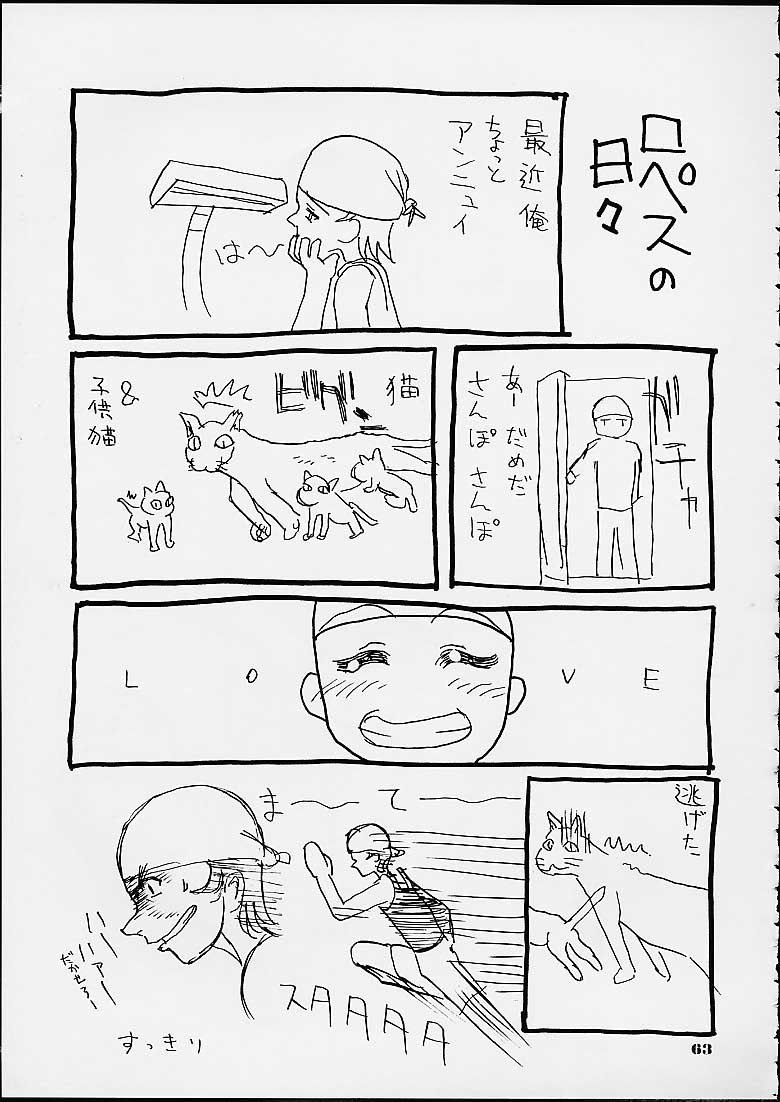 ロペスの
日々
最近俺
ちょっと
アンニュイ
は〜
ガチャ
あーだめだ
さんぽさんぽ
猫
ビグ!
&
子供猫
LOVE
逃げた
まーてー
スタタタタ
ハァー
だかせろー
すっきり
63